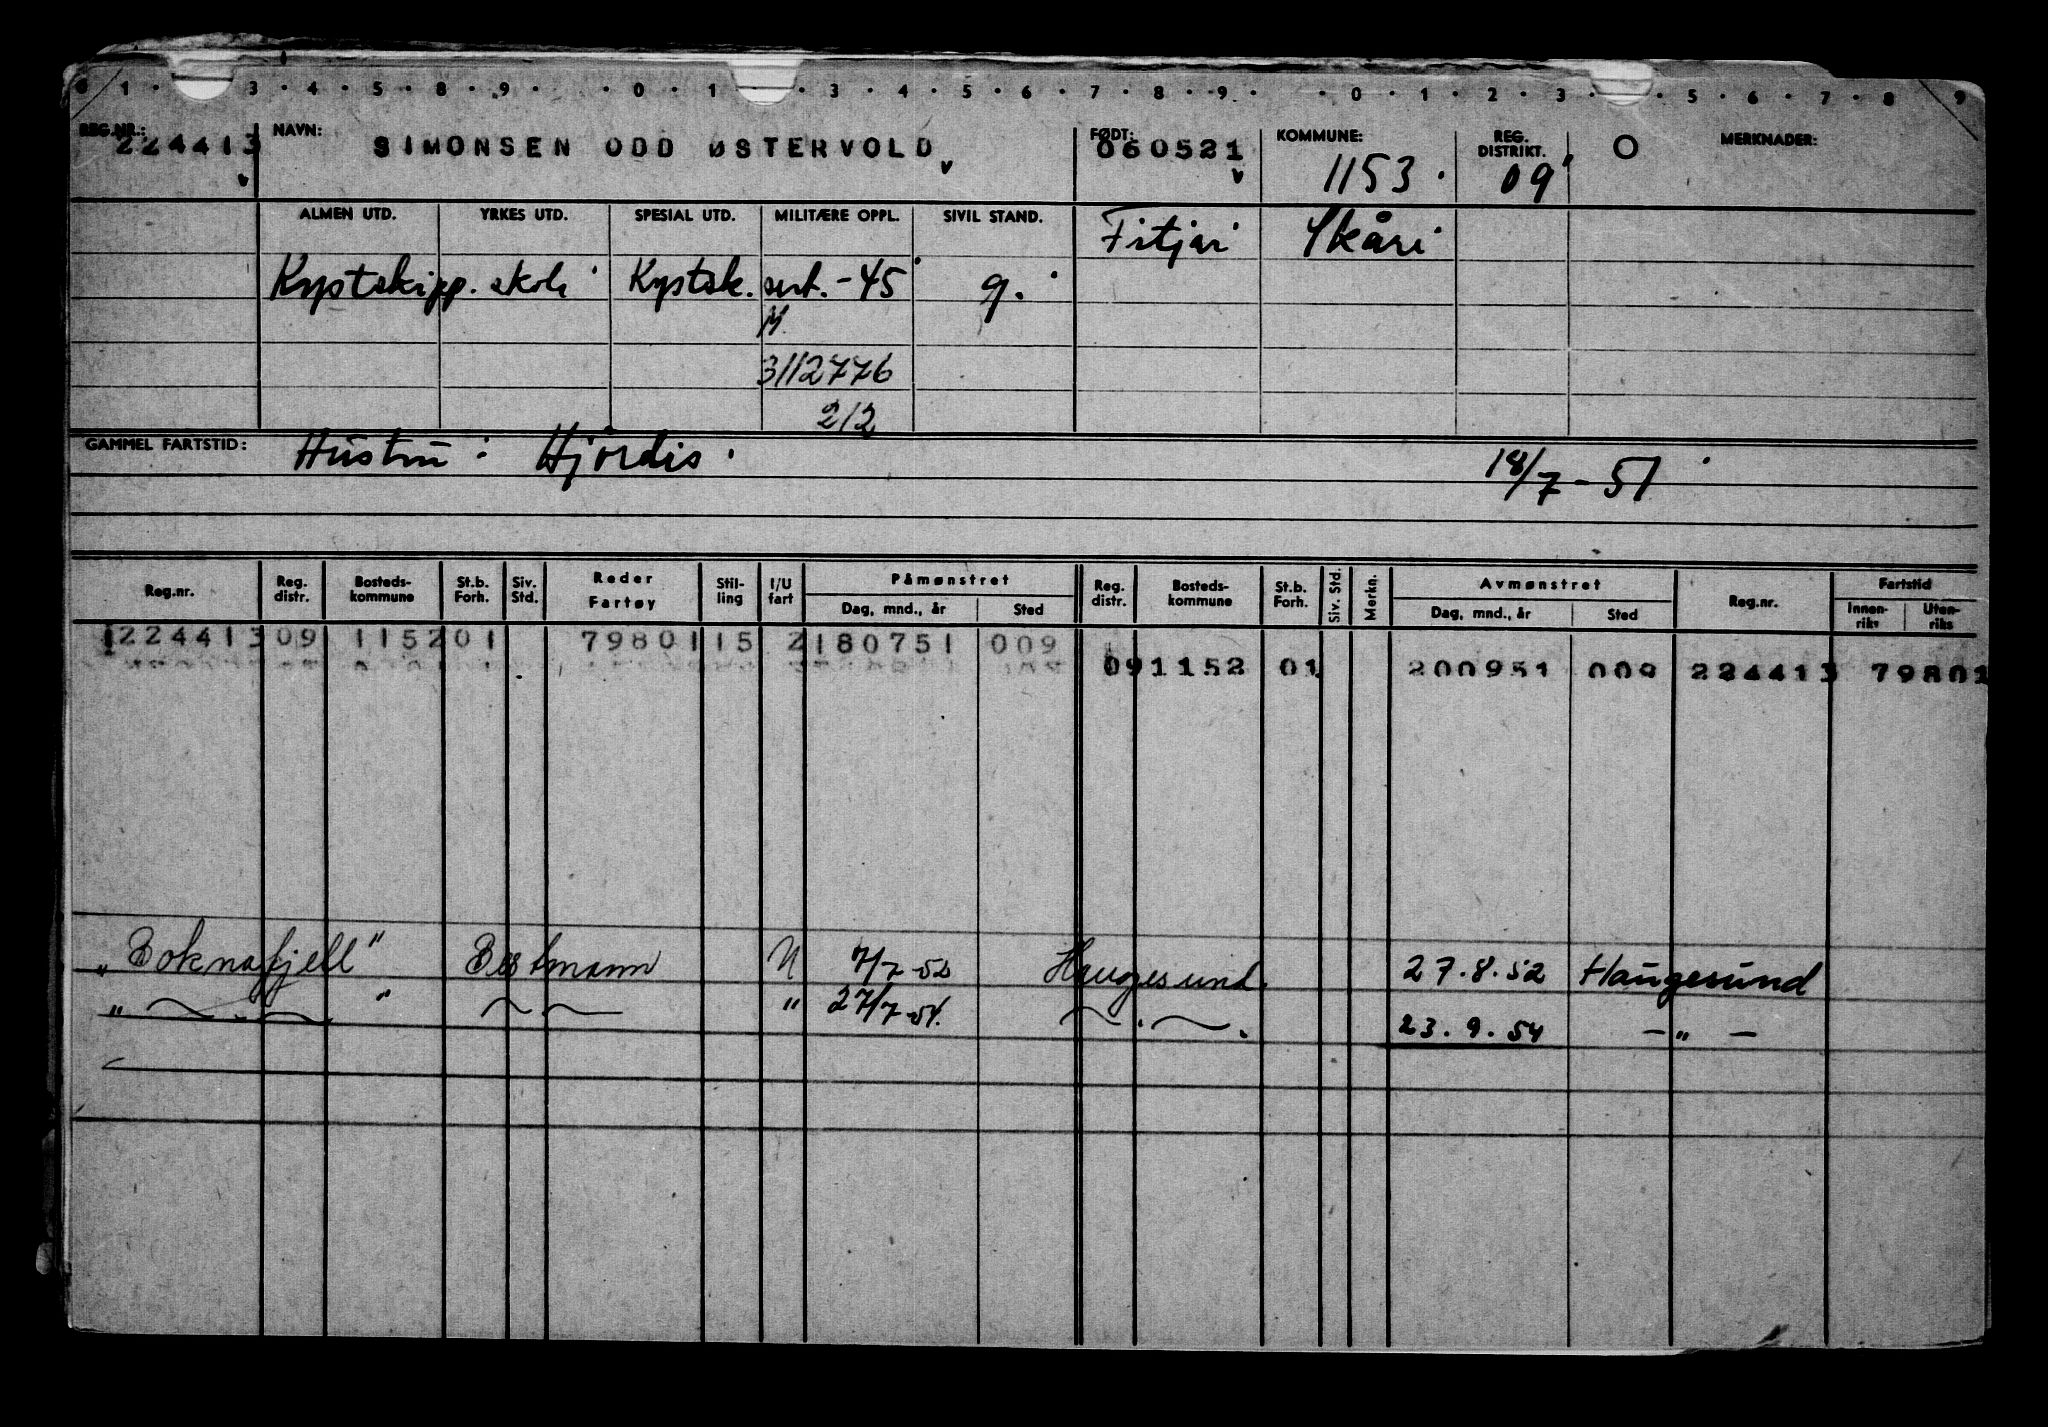 0 1 · 3 · 4 · 5 · 8 · 9 · · 0 · 1 · 3 · 4 · 5 · 6 · 7 · 8 · 9 · · 0 · 1 · 2 · 3 · 5 · 6 · 7 · 8 9
REG.NR.: NAVN: FØDT: KOMMUNE: REG. DISTRIKT. O MERKNADER:
224413 SIMONSEN ODD ØSTERVOLD 060521 1153 · 09
ALMEN UTD. YRKES UTD. SPESIAL UTD. MILITÆRE OPPL. SIVIL STAND. Fitjar Skåre
Kystskipp. skole Kystsk. sert. - 45 g.
M
3112776
2/2
GAMMEL FARTSTID: Hustru: Hjørdis. 18/7 - 51
Reg.nr. Reg. distr. Bosteds- kommune St.b. Forh. Siv. Std. Reder Fartøy Stil- ling I/U fart Påmønstret Dag, mnd., år Sted Reg. distr. Bosteds- kommune St.b. Forh. Siv. Std. Merkn. Avmønstret Dag, mnd., år Sted Reg.nr. Fartstid Innen- riks Uten- riks
224413 09 1152 01 79801 15 2 180751 009
09 1152 01 200951 009 224413 79801
„Boknafjell" Bestmann U 7/7-52 Haugesund. 27.8.52 Haugesund
„ — " — " 27/7-54. — . — . 23.9.54 — „ —